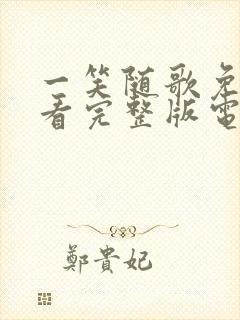 一笑随歌免
看完整版電
鄭貴妃